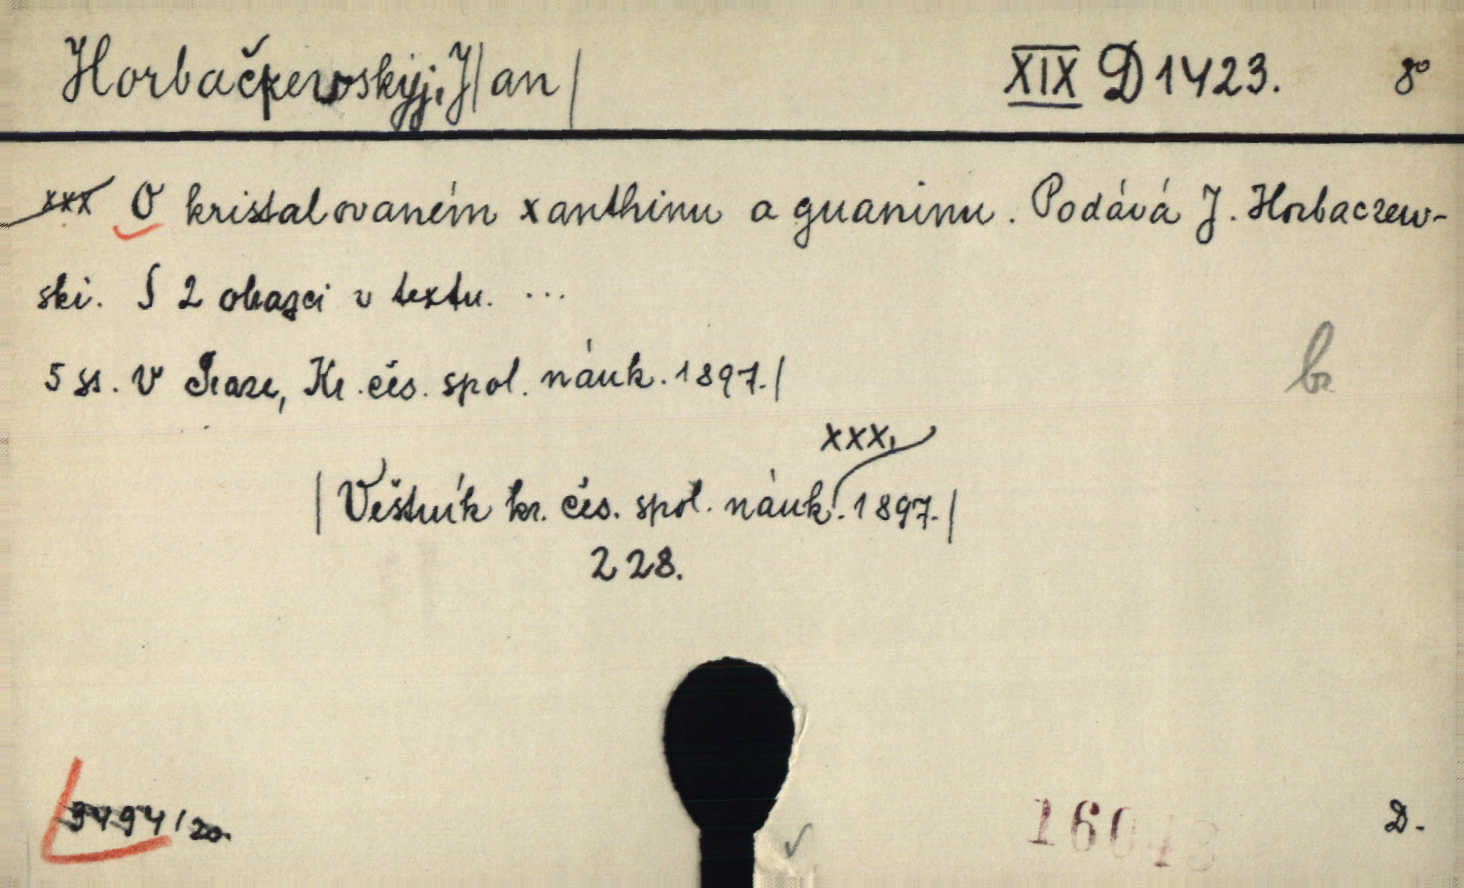 Horbačevskyj, J|an| XIX D 1423. 8°
xxx O kristalovaném xanthinu a guaninu. Podává J. Horbaczew-
ski. S 2 obrazci v textu. ...
5 ss. V Praze, Kr. čes. spol. náuk. 1897.|
br.
xxx,
|Věštník kr. čes. spol. náuk. 1897.|
228.
9494/20. 16043 D.